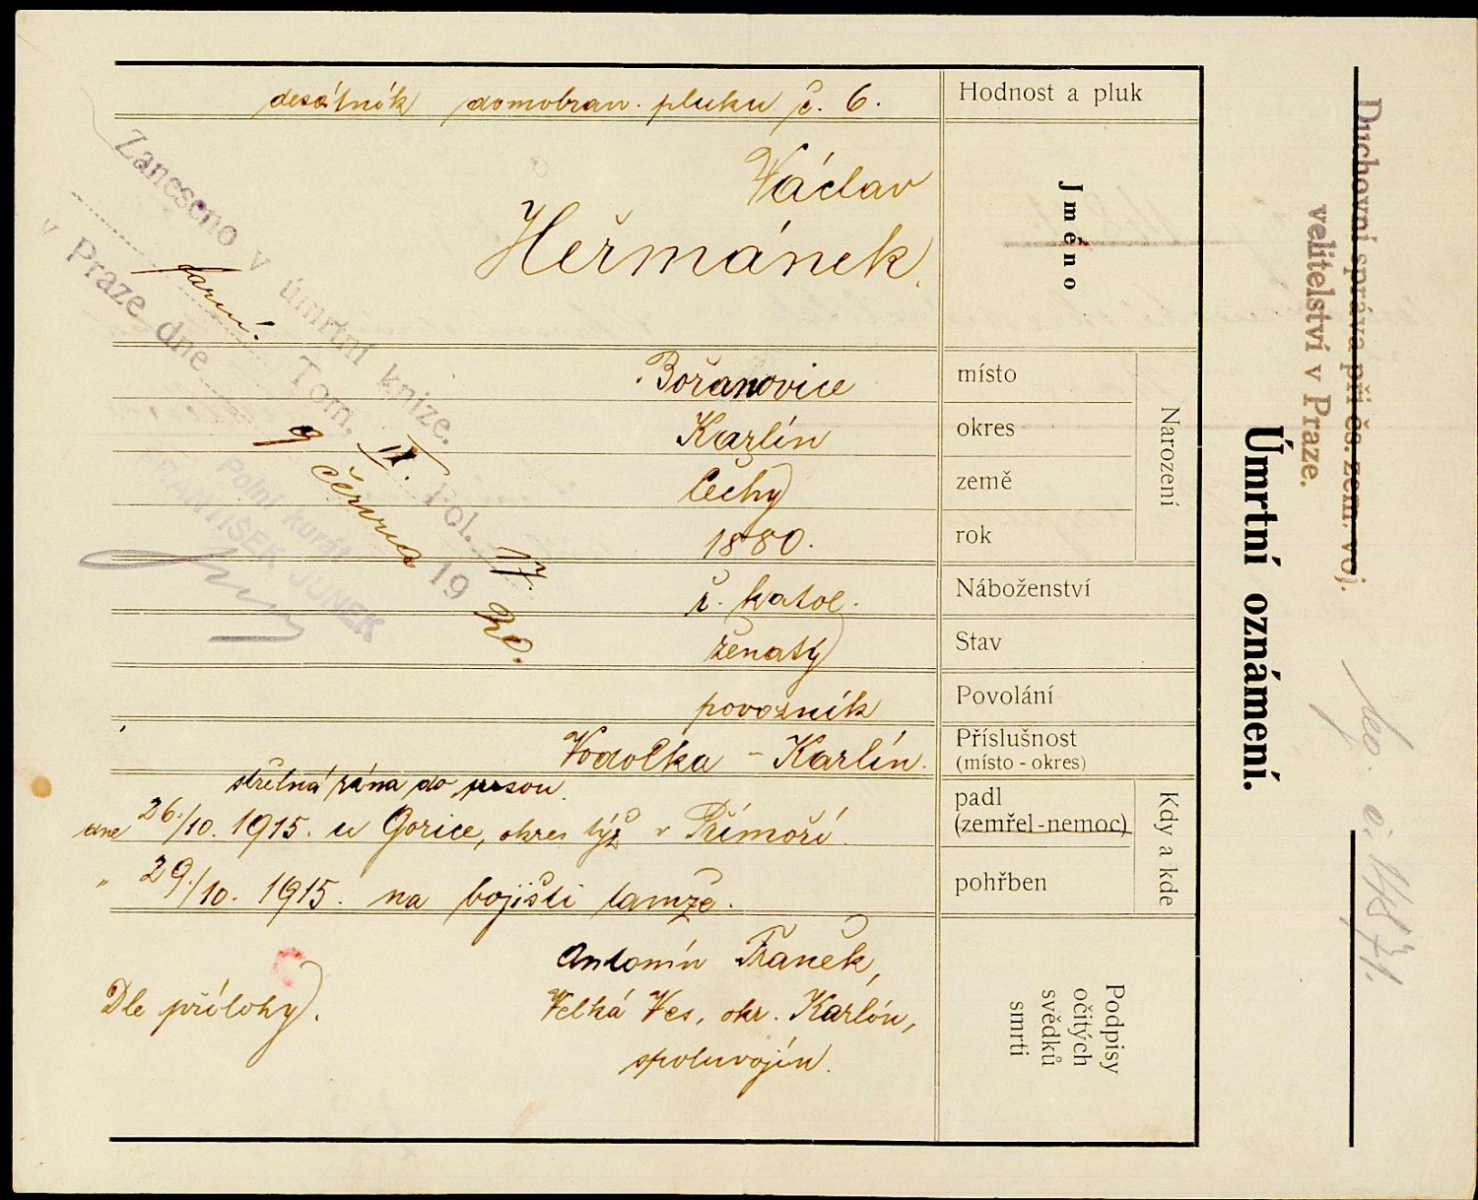 Duchovní správa při čs. zem. voj.
velitelství v Praze.
Úmrtní oznámení.
Hodnost a pluk
desátník domobran. pluku č. 6.
Jméno
Václav
Heřmánek.
Narození
místo
Bořanovice
okres
Karlín
země
Čechy
rok
1880.
Náboženství
ř. katol.
Stav
ženatý
Povolání
povozník
Příslušnost
(místo - okres)
Vodolka - Karlín.
Kdy a kde
padl
(zemřel - nemoc)
střelná rána do prsou.
dne 26./10. 1915. u Gorice, okres týž v Přímoří.
pohřben
" 29./10. 1915. na bojišti tamže.
Podpisy
očitých
svědků
smrti
Antonín Franěk,
Velká Ves, okr. Karlín,
spoluvojín.
Dle přílohy.
Zaneseno v úmrtní knize.
Tom. II. Fol. 17.
v Praze dne 9 června 1920.
Polní kurát
FRANTIŠEK JUNEK